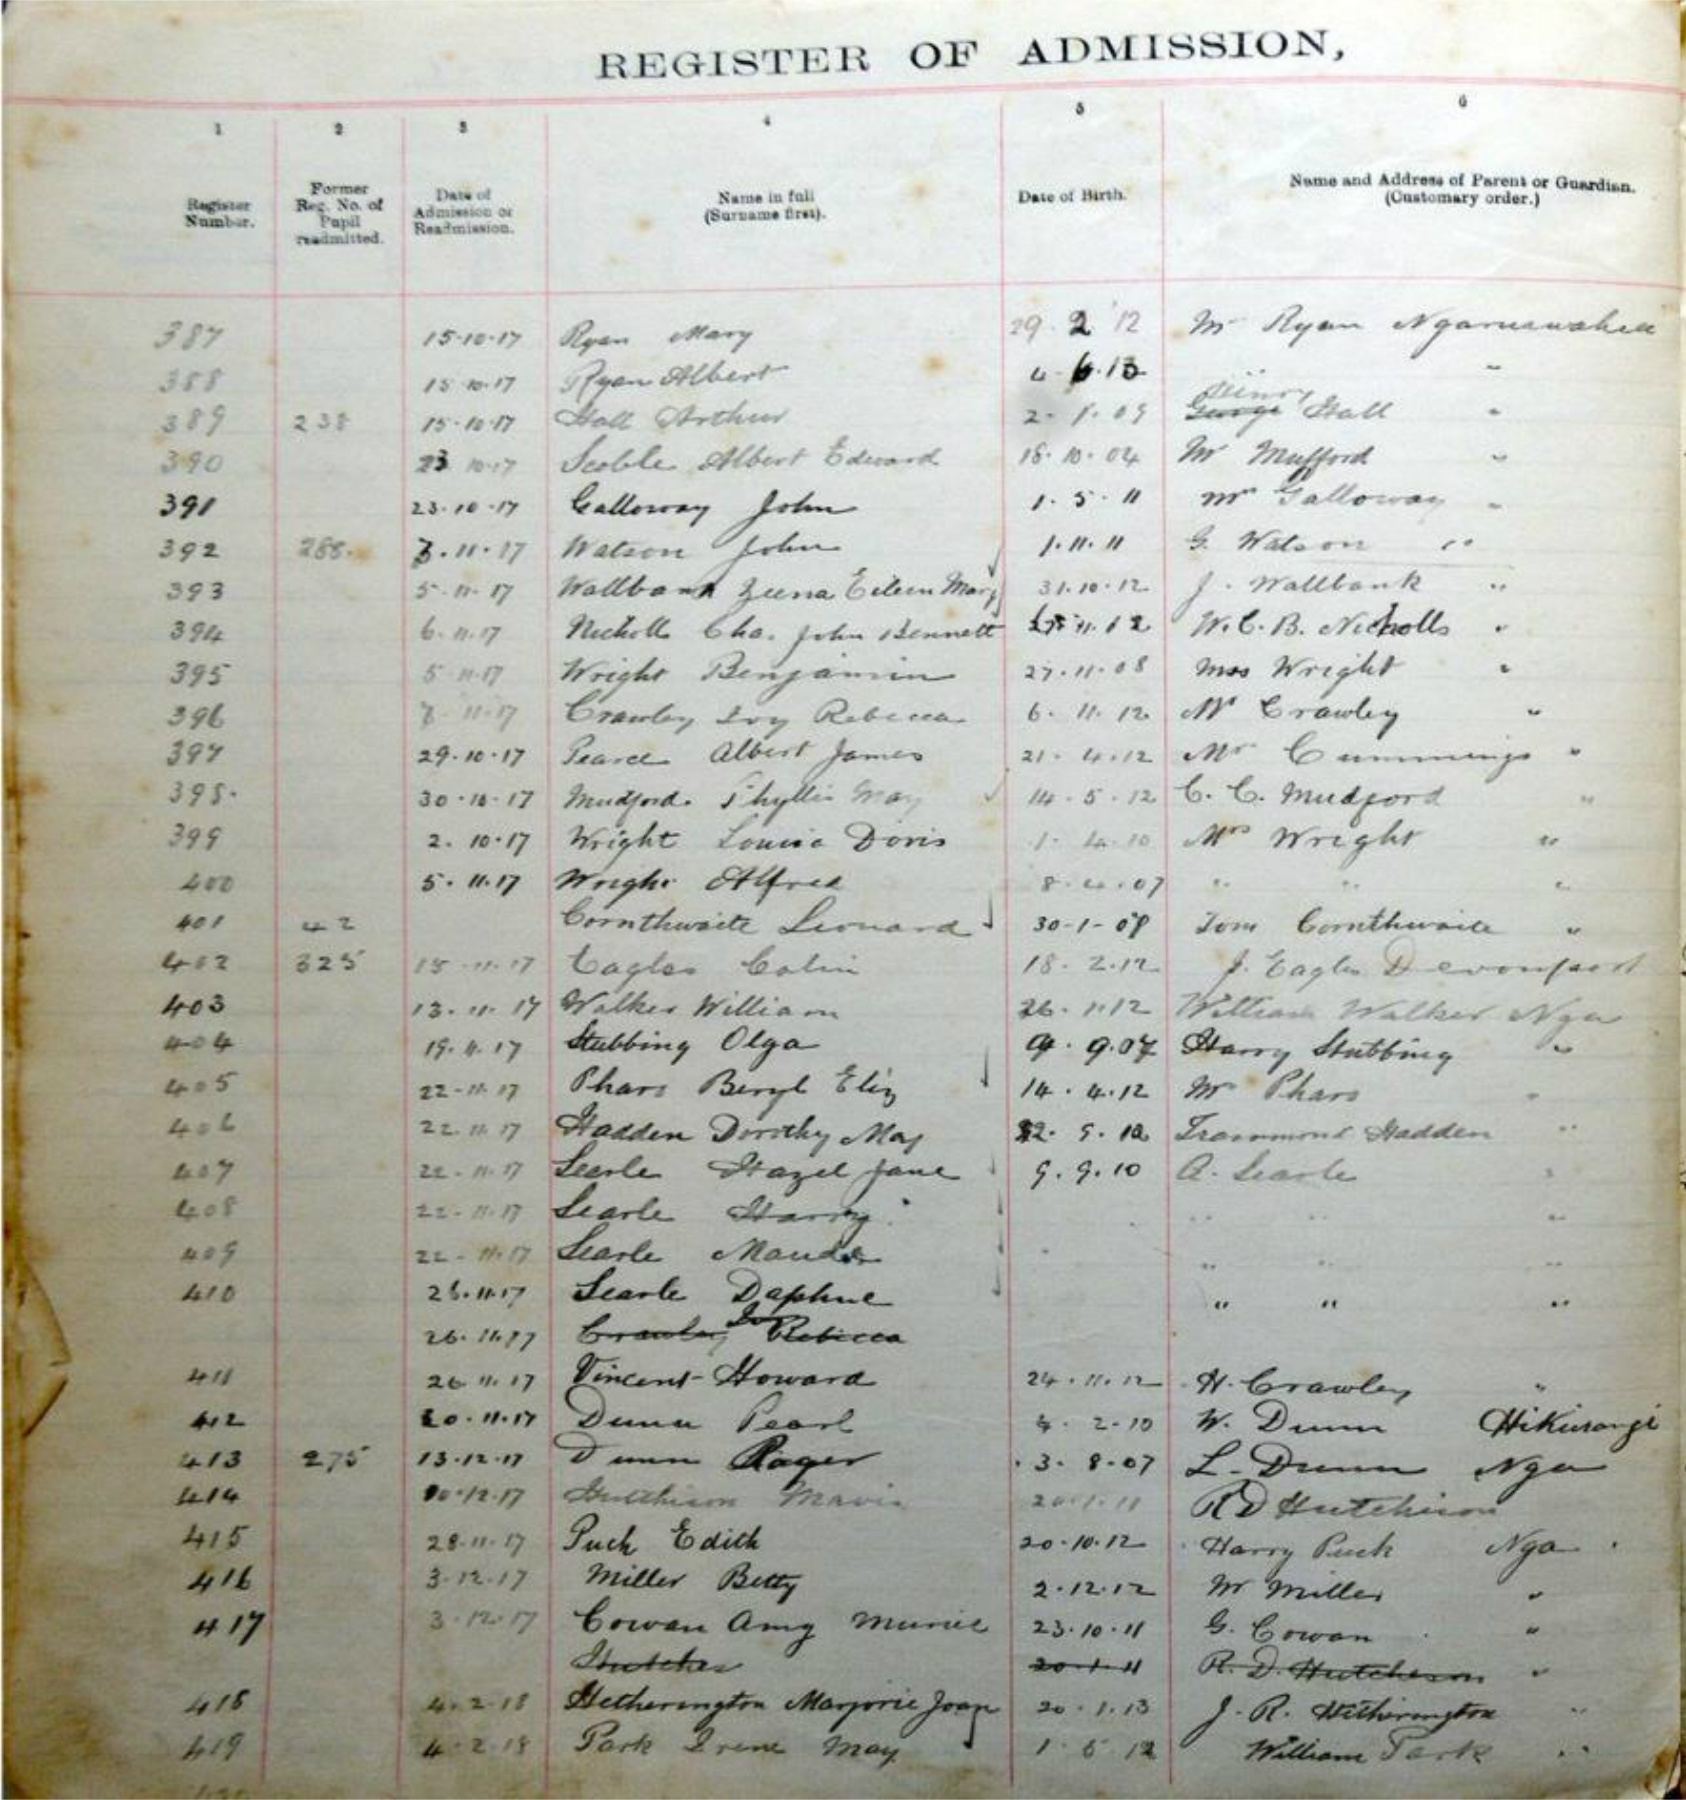 REGISTER OF ADMISSION,
1 2 3 4 5 6
Register Number. Former Reg. No. of Pupil readmitted. Date of Admission or Readmission. Name in full (Surname first). Date of Birth. Name and Address of Parent or Guardian. (Customary order.)
387 15-10-17 Ryan Mary 29. 2 12 Mr Ryan Ngaruawahia
388 15.10.17 Ryan Albert 4. 6.13 "
389 238 15.10.17 Hall Arthur 2. 1. 09 Henry George Hall "
390 23 10.17 Scoble Albert Edward 18. 10. 04 Mr Mufford "
391 23.10.17 Galloway John 1. 5. 11 Mr Galloway "
392 288. 3.11.17 Watson John 1.11.11 G. Watson "
393 5.11.17 Wallbank Zeena Eileen Mary 31.10.12 J. Wallbank "
394 6.11.17 Nicholls Cha. John Bennett 11.12 W.C.B. Nicholls "
395 5 11.17 Wright Benjamin 27.11.08 Mrs Wright "
396 7 11.17 Crawley Ivy Rebecca 6. 11. 12 Mr Crawley "
397 29.10.17 Pearce Albert James 21. 4.12 Mr Cummings "
398. 30.10.17 Mudford. Phyllis May 14. 5. 12 C. C. Mudford "
399 2. 10.17 Wright Louisa Doris 1. 4.10 Mrs Wright "
400 5. 11.17 Wright Alfred 8.4.07 " " "
401 42 Cornthwaite Leonard 30-1-09 Tom Cornthwaite "
402 325 15.11.17 Eagles Colin 18. 2.12 J. Eagles Devonport
403 13. 11. 17 Walker William 26. 1.12 William Walker Nga
404 19. 11. 17 Stubbing Olga 9. 9.07 Harry Stubbing "
405 22-11.17 Pharo Beryl Eliz 14. 4.12 Mr Pharo "
406 22.11.17 Hadden Dorothy May 22. 9. 12 Hadden "
407 22.11.17 Searle Hazel Jane 9. 9. 10 A. Searle "
408 22-11.17 Searle Harry " " "
409 22-11.17 Searle Maude " " "
410 26.11.17 Searle Daphne " " "
26.11.17 Crawley Ivy Rebecca
411 26 11.17 Vincent Howard 24.11.12 H. Crawley "
412 20.11.17 Dunn Pearl 4. 2-10 W. Dunn Hikurangi
413 275 13.12.17 Dunn Roger 3. 8-07 L. Dunn Nga
414 10.12.17 Hutchison Mavis 20.1.11 R D Hutchison
415 28.11.17 Puch Edith 20.10.12 Harry Puch Nga
416 3.12.17 Miller Betty 2.12.12 Mr Miller "
417 3.12.17 Cowan Amy Muriel 23.10.11 G. Cowan "
Hutches 20.1.11 R. D. Hutcheson "
418 4.2.18 Hetherington Marjorie Joan 20. 1.13 J. R. Hetherington "
419 4.2.18 Park Irene May 1 5 12 William Park "